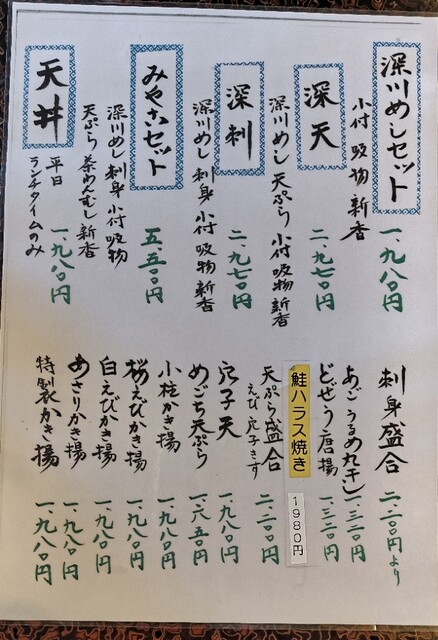 深川めしセット
小付 吸物 新香
一、九八〇円
深天
深川めし 天ぷら 小付 吸物 新香
二、九七〇円
深刺
深川めし 刺身 小付 吸物 新香
二、九七〇円
みやこセット
深川めし 刺身 小付 吸物
天ぷら 茶わんむし 新香
五、五〇〇円
天丼
平日
ランチタイムのみ
一、九八〇円
刺身盛合
二、二〇〇円より
あご うるめ丸干し
一、三二〇円
どぜう唐揚
一、三二〇円
鮭ハラス焼き
1980円
天ぷら盛合
えび 穴子 きす
二、二〇〇円
穴子天
一、九八〇円
めごち天ぷら
一、六五〇円
小柱かき揚
一、九八〇円
桜えびかき揚
一、九八〇円
白えびかき揚
一、九八〇円
あさりかき揚
一、九八〇円
特製かき揚
一、九八〇円